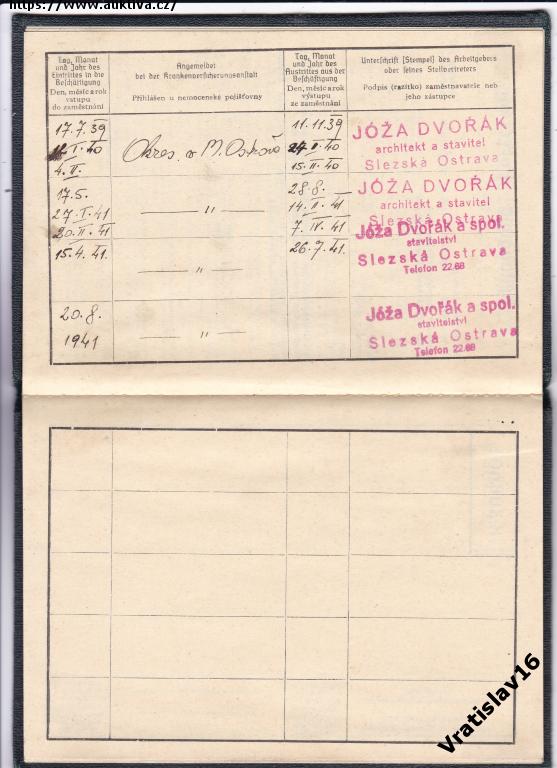 https://www.auktiva.cz/
Tag, Monat
und Jahr des
Eintrittes in die
Beschäftigung
Den, měsíc a rok
vstupu
do zaměstnání
Angemeldet
bei der Krankenversicherungsanstalt
Přihlášen u nemocenské pojišťovny
Tag, Monat
und Jahr des
Austrittes aus der
Beschäftigung
Den, měsíc a rok
výstupu
ze zaměstnání
Unterschrift (Stempel) des Arbeitgebers
oder seines Stellvertreters
Podpis (razítko) zaměstnavatele neb
jeho zástupce
17.7.39
I. 40
4. II.
Okres. v M. Ostravě
11.11.39
II. 40
15. II. 40
JÓŽA DVOŘÁK
architekt a stavitel
Slezská Ostrava
17.5.
27. I. 41
20. II. 41
— " —
28.8.
14. II. 41
7. IV. 41
JÓŽA DVOŘÁK
architekt a stavitel
Slezská Ostrava
15.4.41.
— " —
26.7.41.
Jóža Dvořák a spol.
stavitelství
Slezská Ostrava
Telefon 22.68
20.8.
1941
— " —
Jóža Dvořák a spol.
stavitelství
Slezská Ostrava
Telefon 22.68
Vratislav16